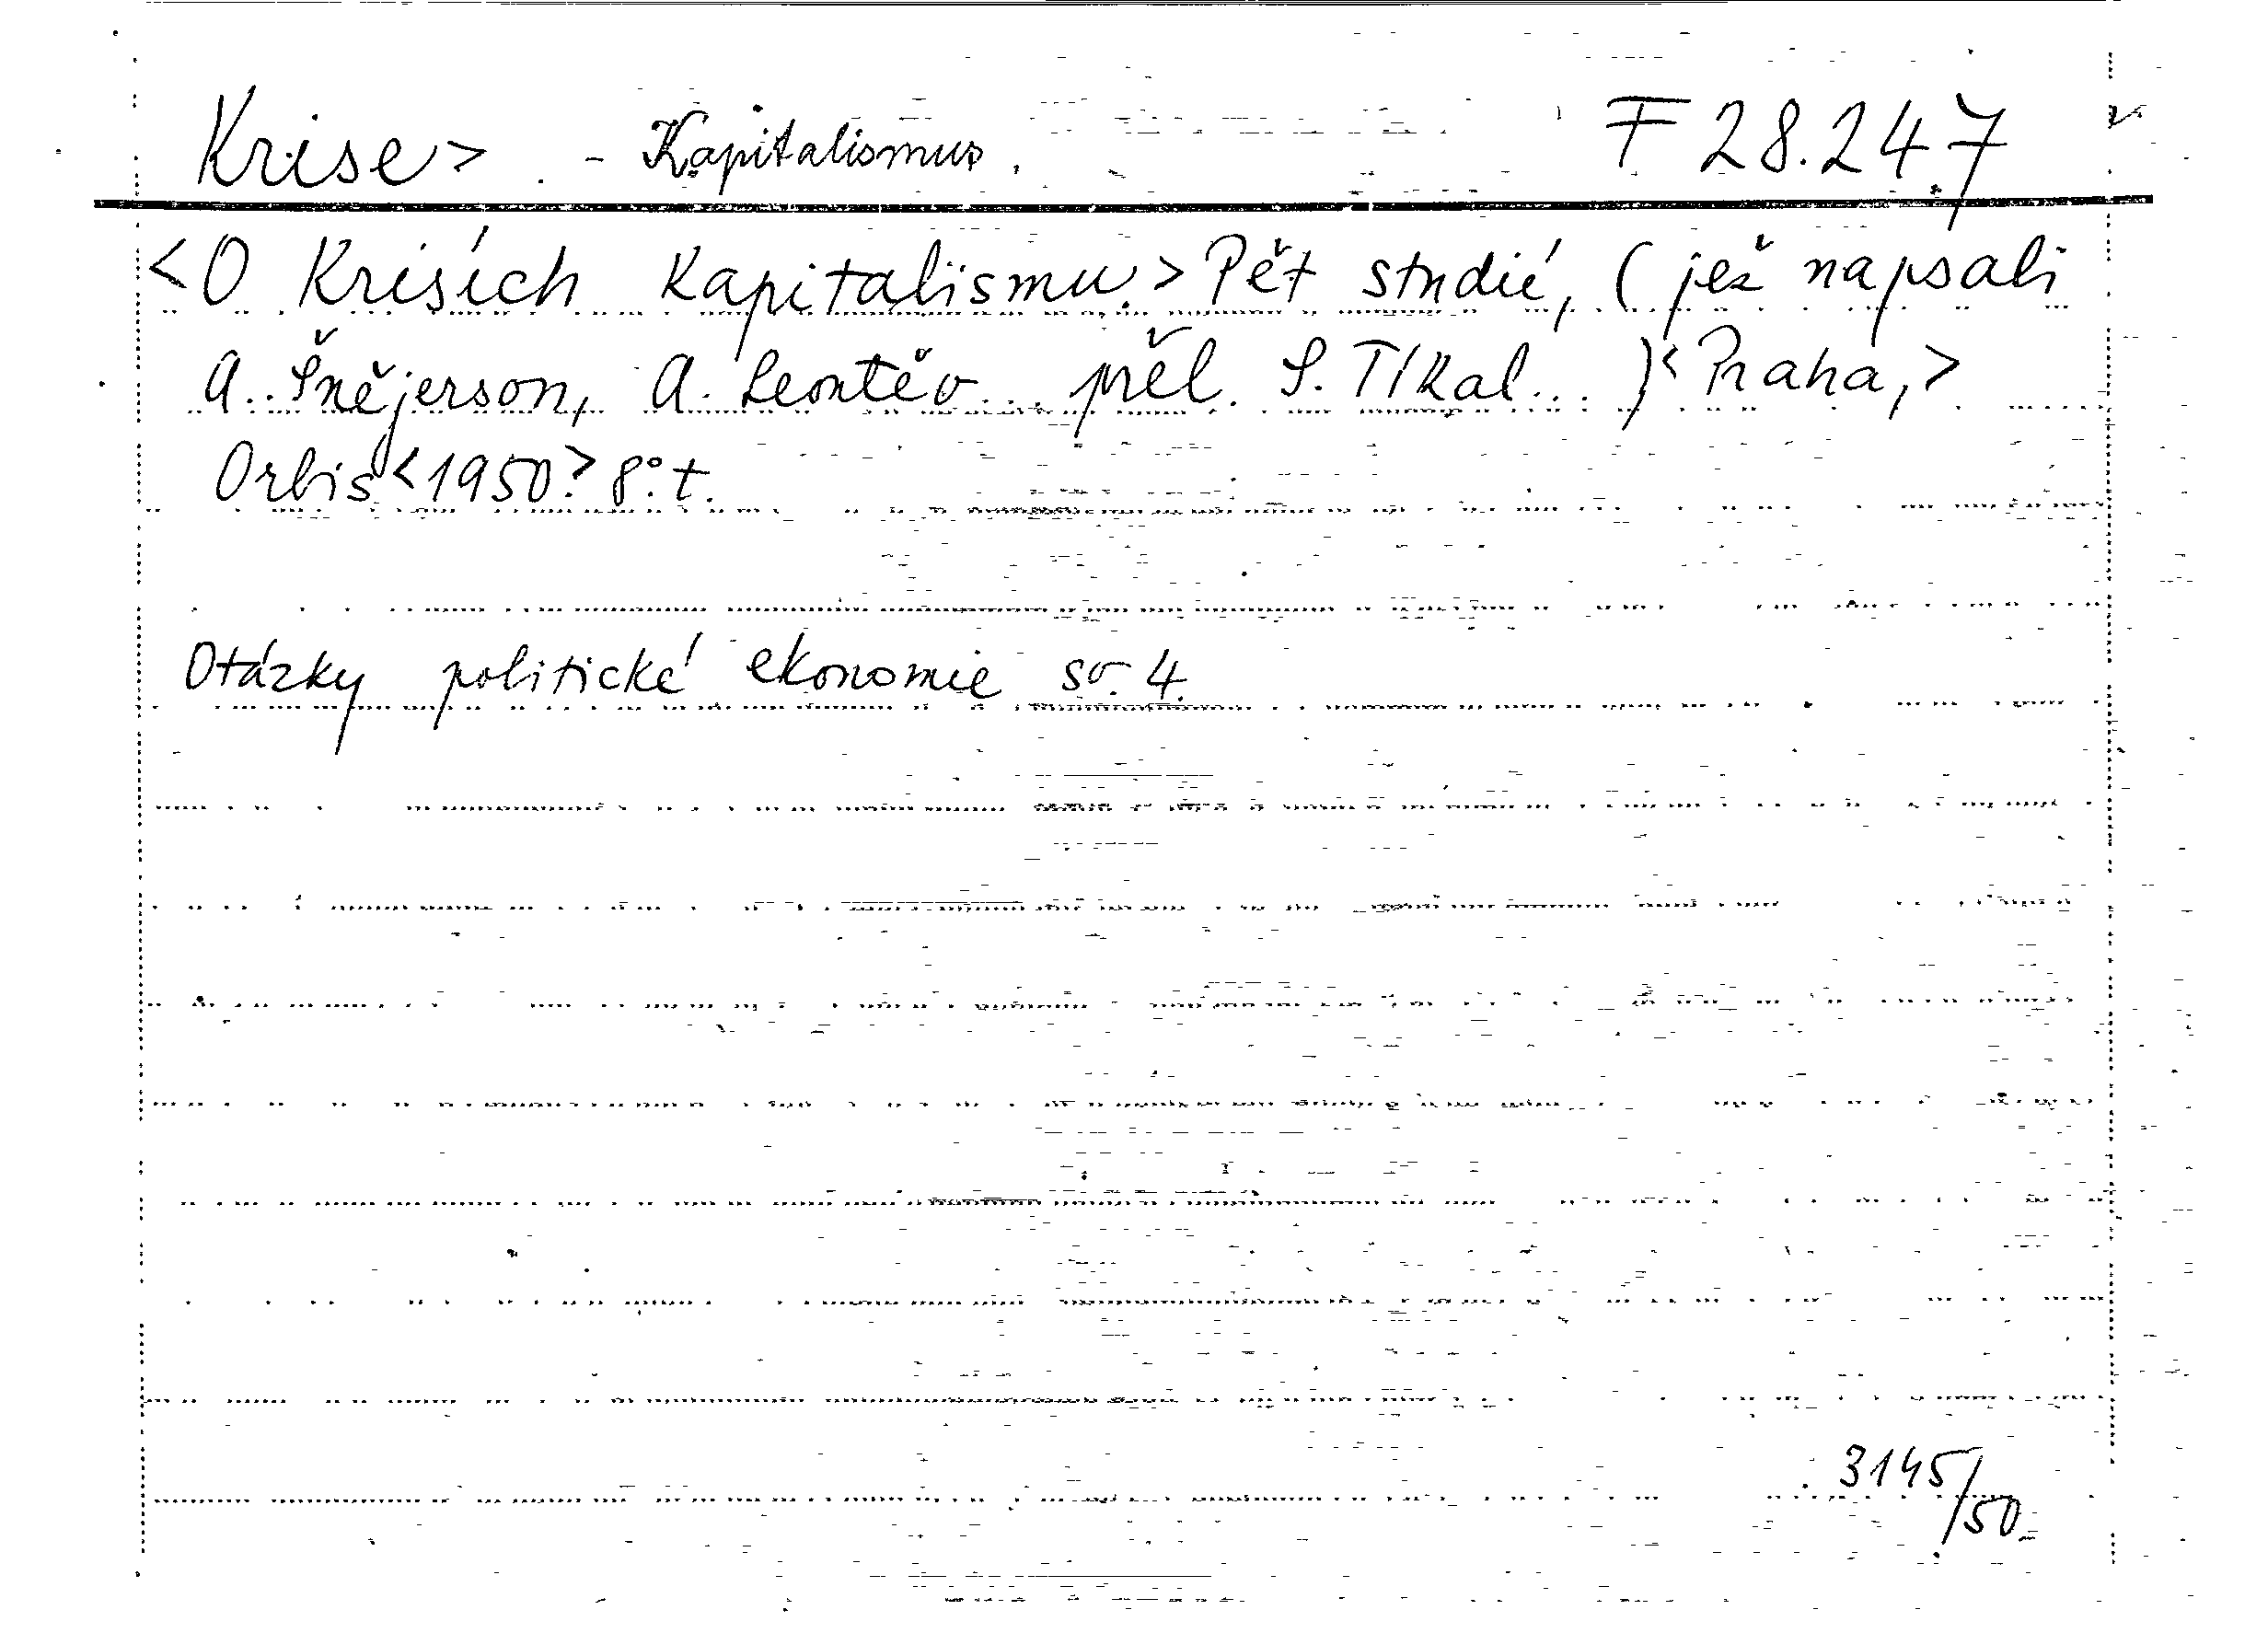 Krise> - Kapitalismus. F 28.247
<O Krisích Kapitalismu.> Pět studií, (jež napsali
A. Šnějerson, A. Leontěv... přel. S. Tikal... )<Praha,>
Orbis <1950.> 8°. t.
Otázky politické ekonomie sv. 4.
3145/50.